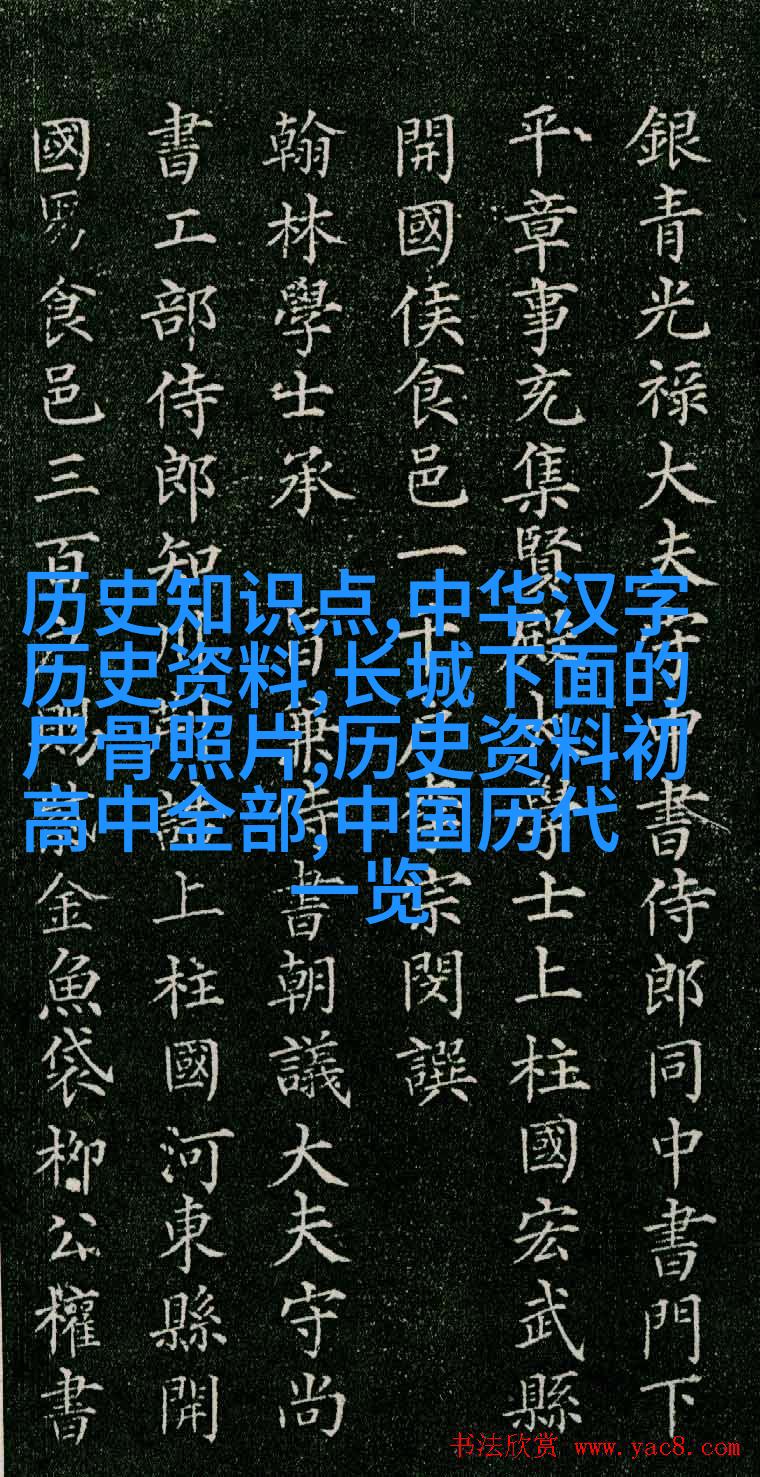 銀青光祿大夫守中書侍郎同中書門下
平章事充集賢殿大學士上柱國宏武縣
開國侯食邑一千戶李宗閔譔
翰林學士承旨兼侍書朝議大夫守尚
書工部侍郎知制誥上柱國河東縣開
國男食邑三百戶賜紫金魚袋柳公權書
历史知识点,中华汉字
历史资料,长城下面的
尸骨照片,历史资料初
高中全部,中国历代
一览
书法欣赏 www.yac8.com